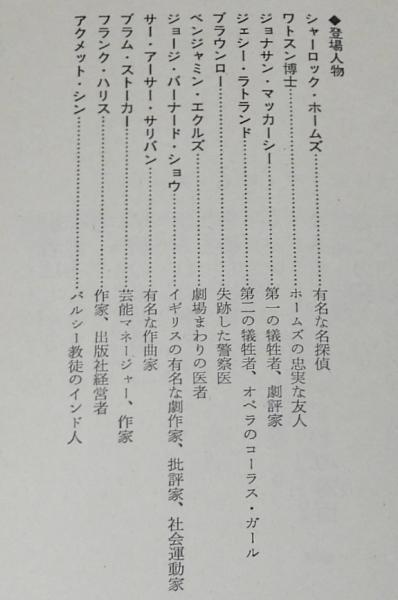 ◆登場人物
シャーロック・ホームズ……………有名な名探偵
ワトスン博士……………ホームズの忠実な友人
ジョナサン・マッカーシー……………第一の犠牲者、劇評家
ジェシー・ラトランド……………第二の犠牲者、オペラのコーラス・ガール
ブラウンロー……………失跡した警察医
ベンジャミン・エクルズ……………劇場まわりの医者
ジョージ・バーナード・ショウ……………イギリスの有名な劇作家、批評家、社会運動家
サー・アーサー・サリバン……………有名な作曲家
ブラム・ストーカー……………芸能マネージャー、作家
フランク・ハリス……………作家、出版社経営者
アクメット・シン……………パルシー教徒のインド人